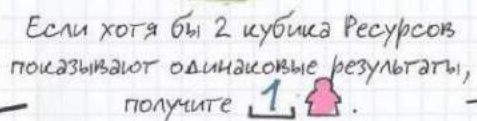 Если хотя бы 2 кубика Ресурсов
показывают одинаковые результаты,
получите 1 .